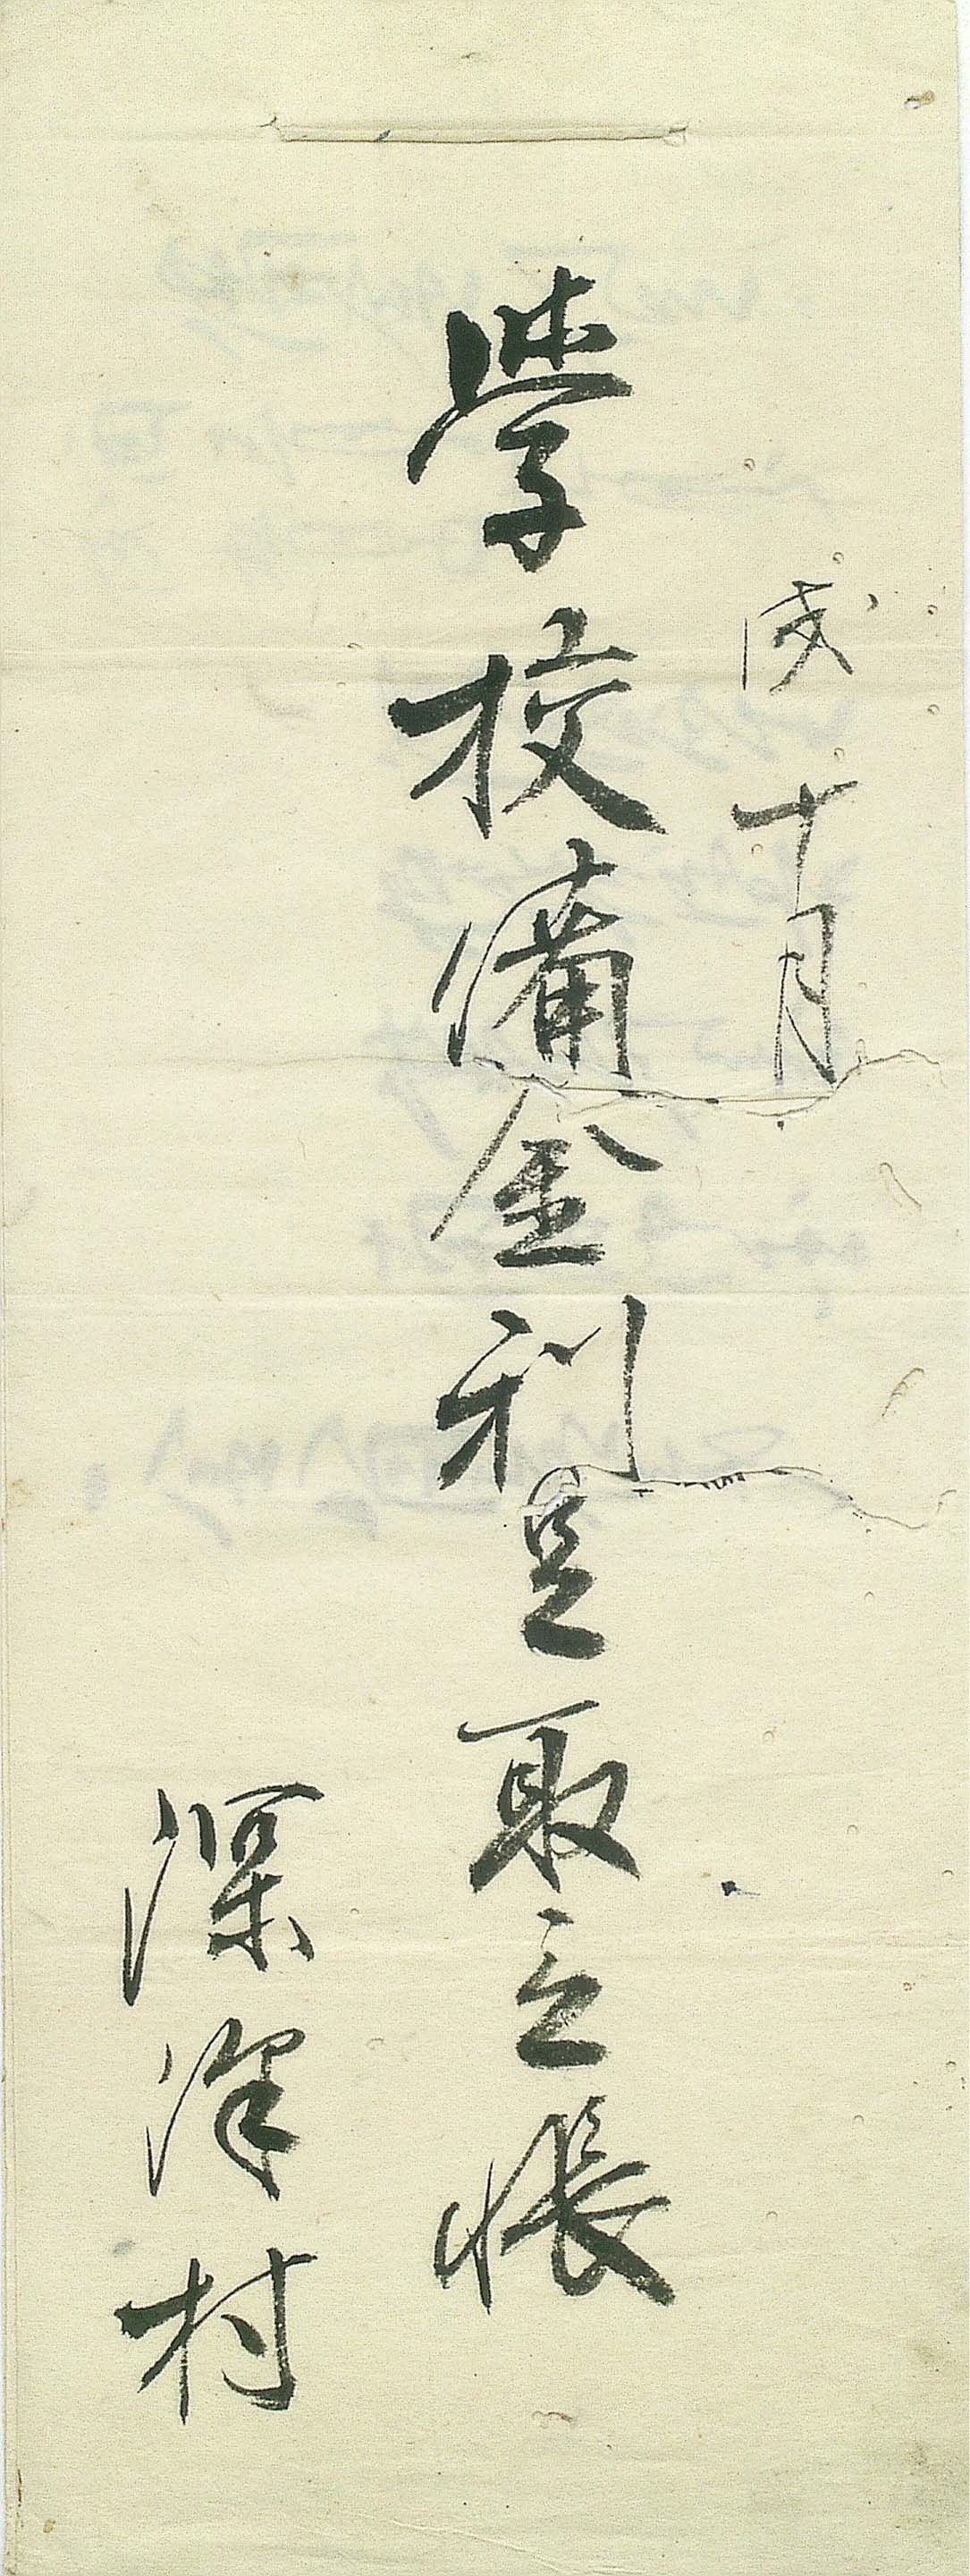 戌十月
學校備金利足取立帳
深澤村